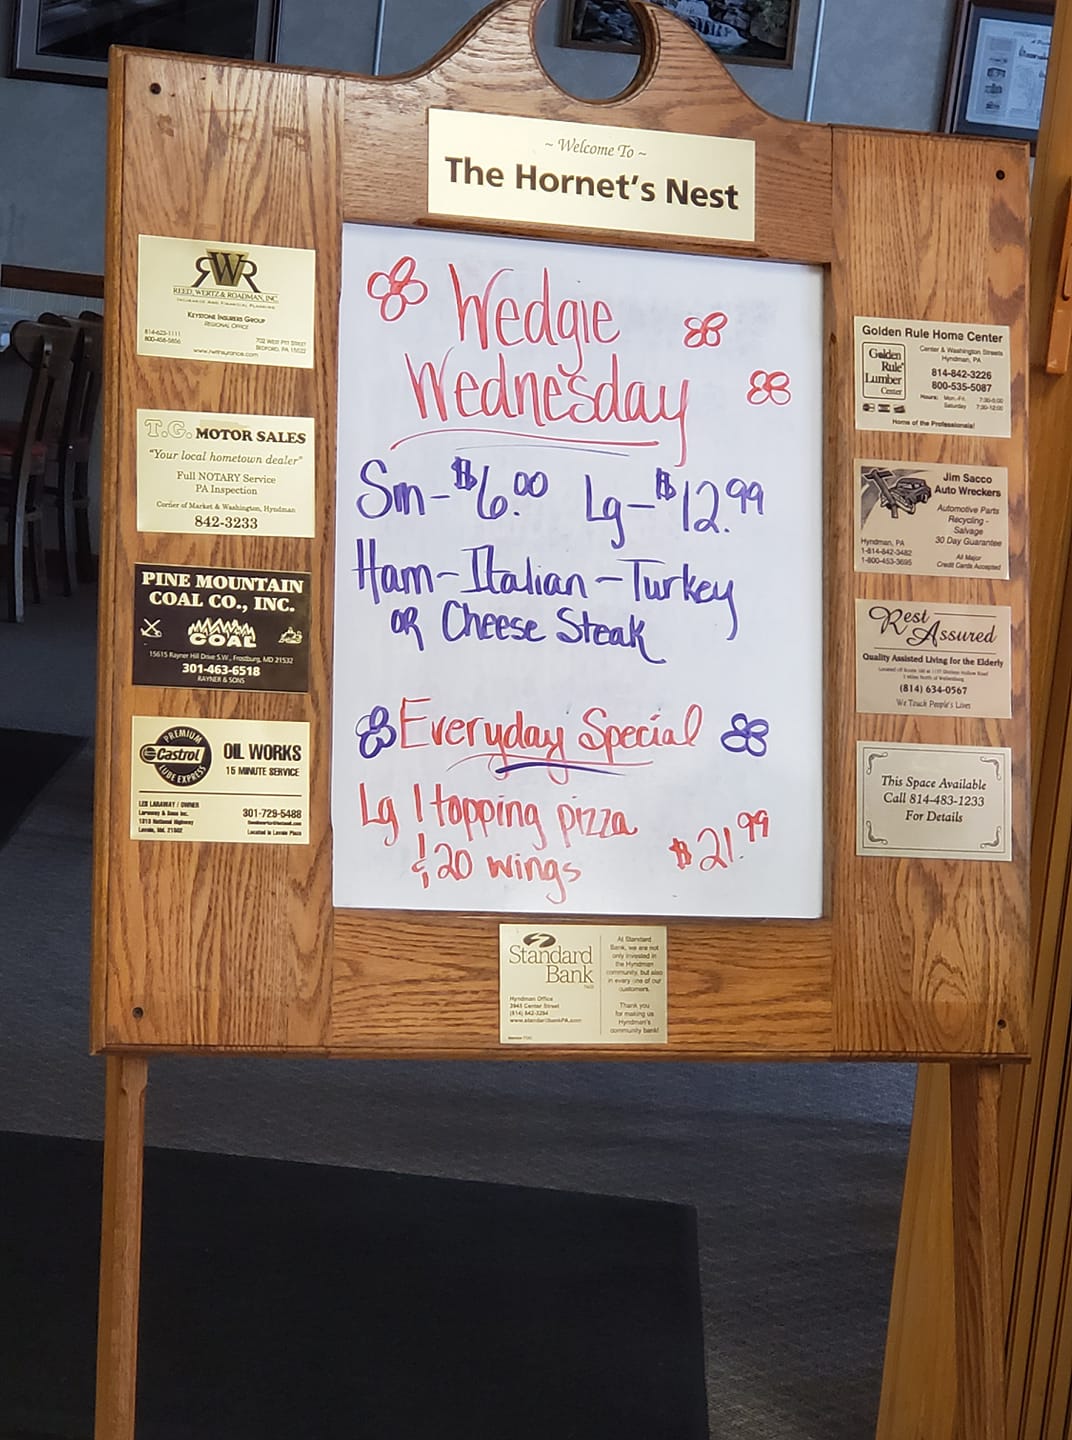 ~ Welcome To ~
The Hornet's Nest
RWR
REED, WERTZ & ROADMAN, INC.
INSURANCE AND FINANCIAL PLANNING
KEYSTONE INSURERS GROUP
REGIONAL OFFICE
814-623-1111
800-456-5856
702 WEST PITT STREET
BEDFORD, PA 15522
www.rwrinsurance.com
T.G. MOTOR SALES
"Your local hometown dealer"
Full NOTARY Service
PA Inspection
Corner of Market & Washington, Hyndman
842-3233
PINE MOUNTAIN
COAL CO., INC.
COAL
15615 Rayner Hill Drive S.W., Frostburg, MD 21532
301-463-6518
RAYNER & SONS
PREMIUM
Castrol
LUBE EXPRESS
OIL WORKS
15 MINUTE SERVICE
LES LARAWAY / OWNER
Laraway & Sons Inc.
1313 National Highway
Lavale, Md. 21502
301-729-5488
Located in Lavale Plaza
Wedgie
Wednesday
Sm - $6.00 Lg - $12.99
Ham - Italian - Turkey
OR Cheese Steak
Everyday Special
Lg 1 topping pizza
& 20 wings $21.99
Golden Rule Home Center
Golden
Rule
Lumber
Center
Center & Washington Streets
Hyndman, PA
814-842-3226
800-535-5087
Hours: Mon.-Fri. 7:30-5:00
Saturday 7:30-12:00
Home of the Professionals!
Jim Sacco
Auto Wreckers
Automotive Parts
Recycling -
Salvage
30 Day Guarantee
Hyndman, PA
1-814-842-3482
1-800-453-3695
All Major
Credit Cards Accepted
Rest
Assured
Quality Assisted Living for the Elderly
(814) 634-0567
We Touch People's Lives
This Space Available
Call 814-483-1233
For Details
Standard
Bank
Hyndman Office
3945 Center Street
(814) 842-3294
www.standardbankPA.com
At Standard
Bank, we are not
only invested in
the Hyndman
community, but also
in every one of our
customers.
Thank you
for making us
Hyndman's
community bank!